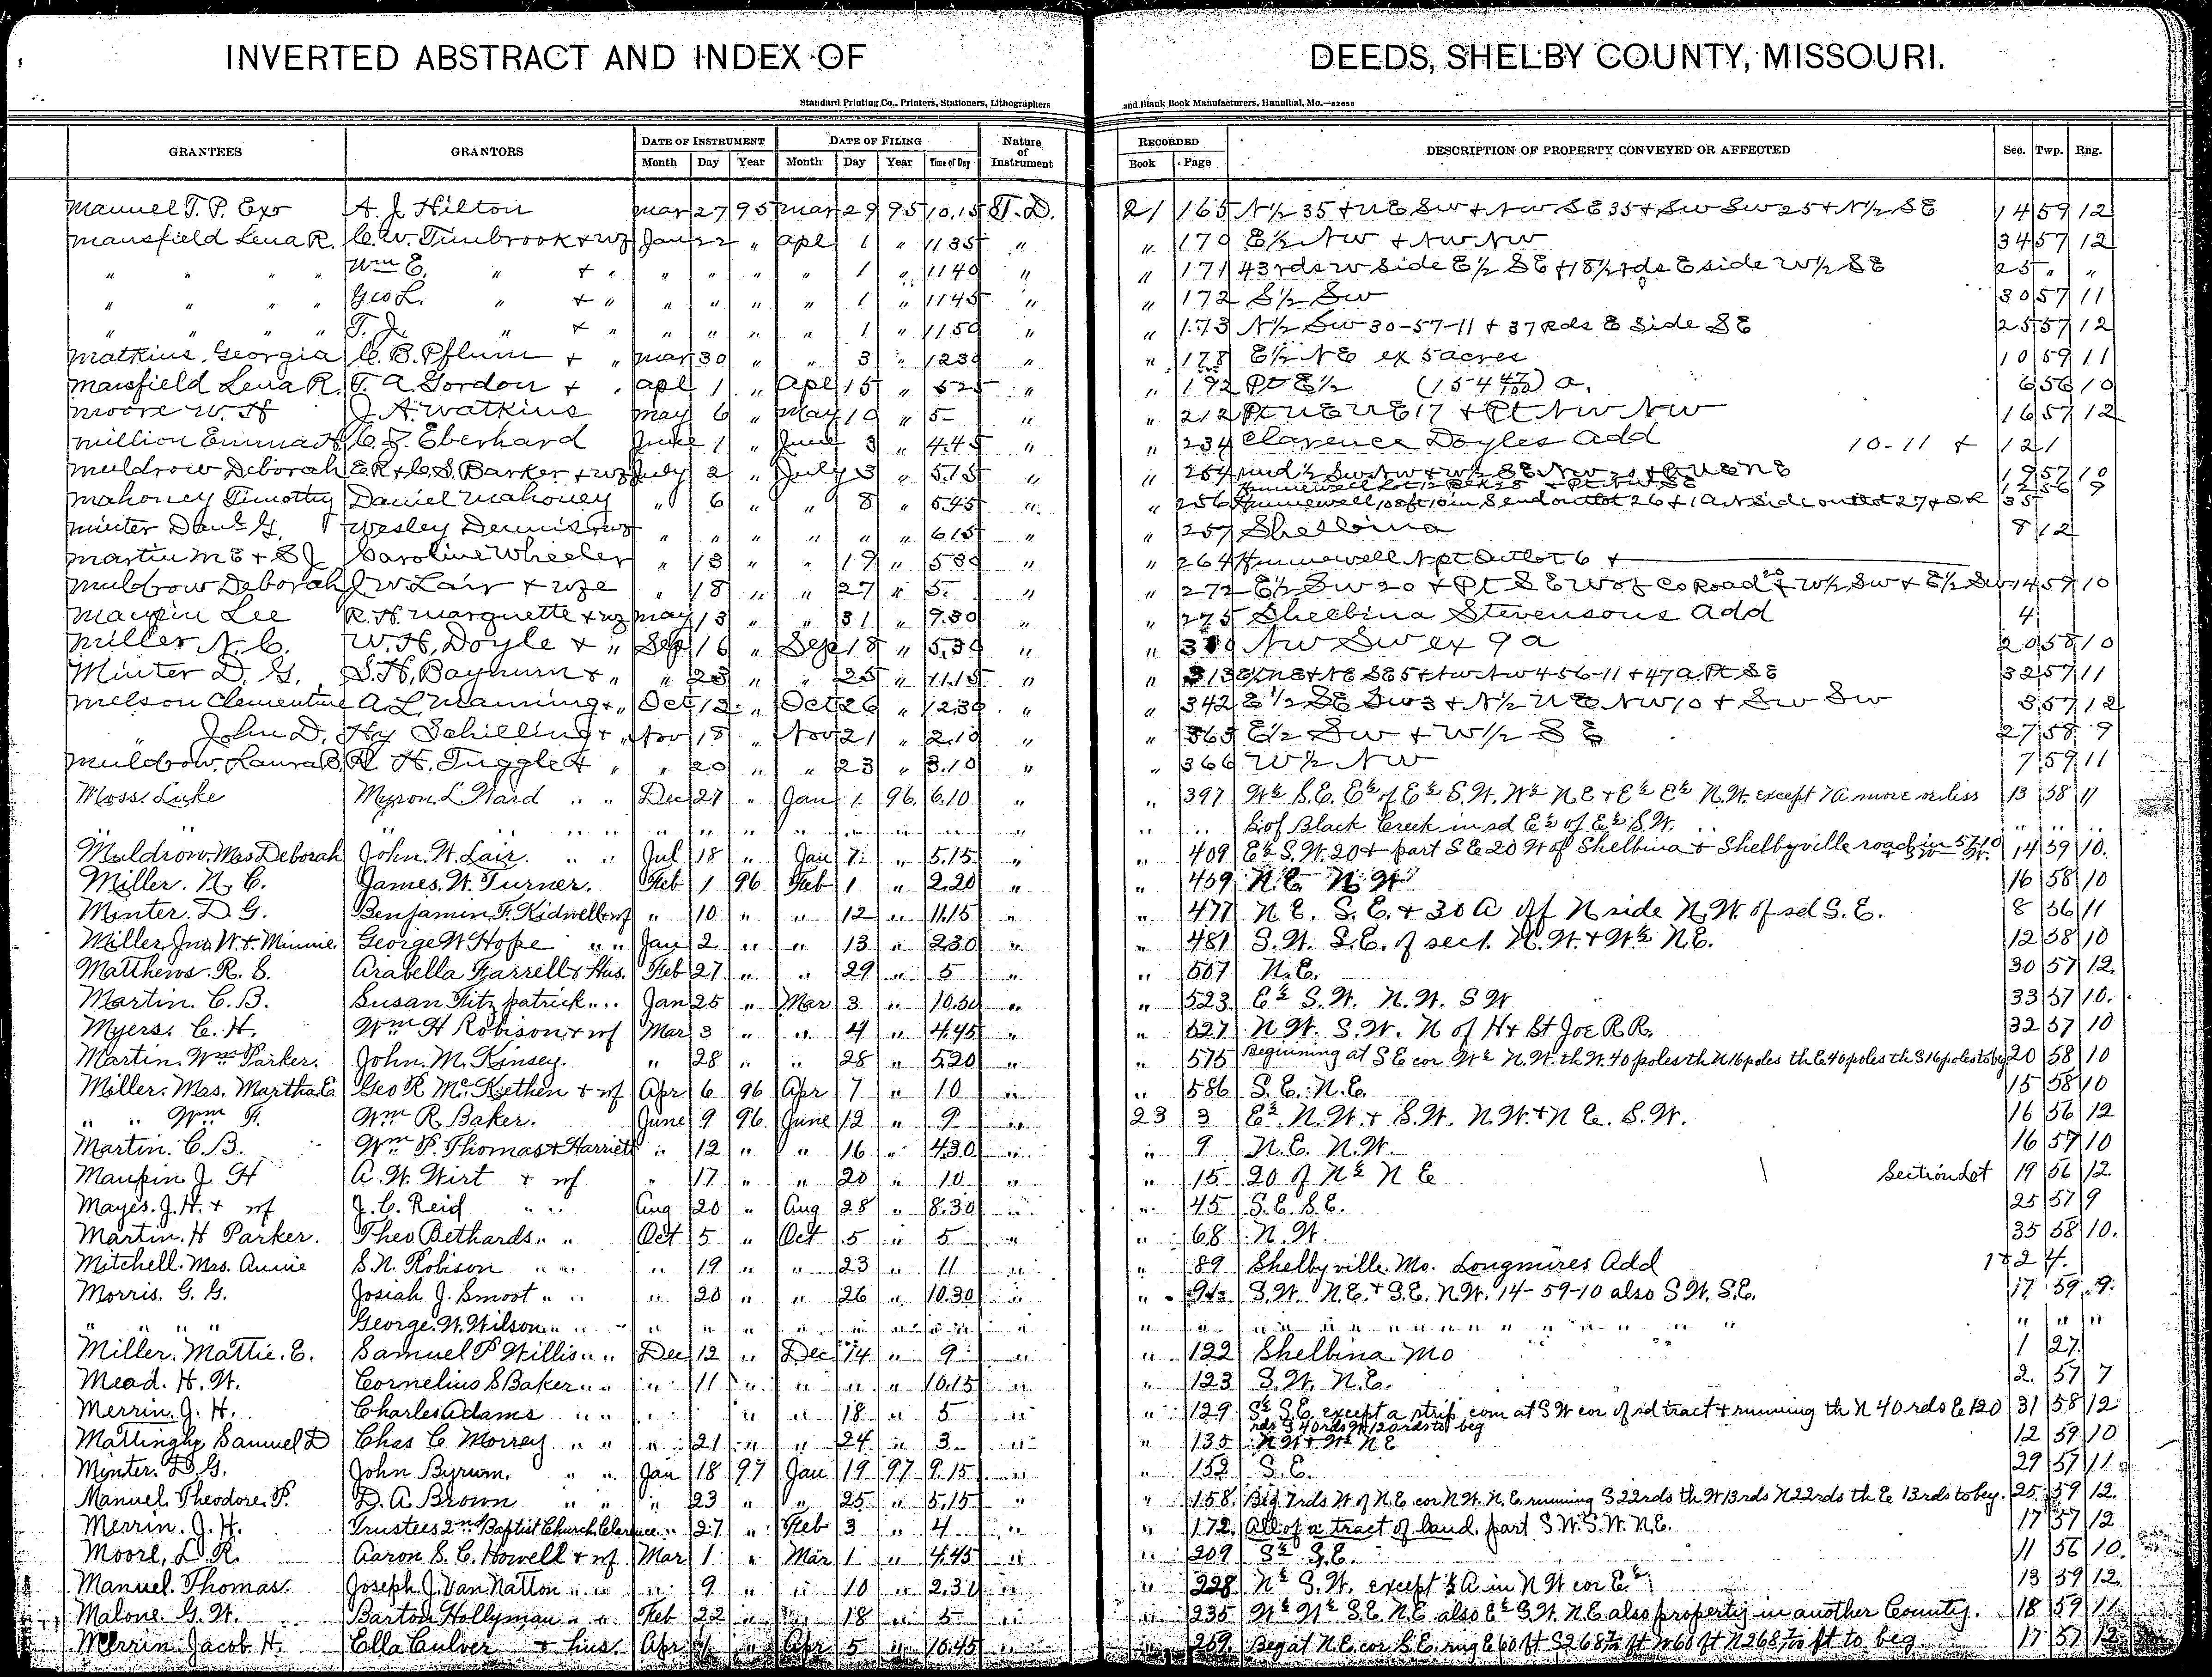 INVERTED ABSTRACT AND INDEX OF DEEDS, SHELBY COUNTY, MISSOURI.
Standard Printing Co., Printers, Stationers, Lithographers and Blank Book Manufacturers, Hannibal, Mo.—82650
GRANTEES GRANTORS DATE OF INSTRUMENT DATE OF FILING Nature of Instrument RECORDED DESCRIPTION OF PROPERTY CONVEYED OR AFFECTED Sec. Twp. Rng.
Month Day Year Month Day Year Time of Day Book Page
Manuel T. P. Exr A. J. Hilton Mar 27 95 Mar 29 95 10.15 T.D. 21 165 N½ 35 + NE SW + NW SE 35 + SW SW 25 + N½ SE 14 59 12
Mansfield Lena R. C. W. Timbrook + wf Jan 22 " Apl 1 " 1135 " " 170 E½ NW + NW NW 34 57 12
" " " " Wm E. " + " " " " " 1 " 1140 " " 171 43 rds W Side E½ SE + 18½ rds E side W½ SE 25 " "
" " " " Geo L. " + " " " " " 1 " 1145 " " 172 S½ SW 30 57 11
" " " " T. J. " + " " " " " 1 " 1150 " " 173 N½ SW 30-57-11 + 37 Rds E Side SE 25 57 12
Matkins Georgia C. B. Pflum + " Mar 30 " " 3 " 1230 " " 178 E½ NE ex 5 acres 10 59 11
Mansfield Lena R. T. A. Gordon + " Apl 1 " Apl 15 " 525 " " 192 Pt E½ (154 47/100) a. 6 56 10
Moore W. H J. A. Watkins May 6 " May 10 " 5- " " 212 Pt NE NE 17 + Pt NW NW 16 57 12
Million Emma H C. J. Eberhard June 1 " June 3 " 4.45 " " 234 Clarence Doyles Add 10-11 + 12 1
Muldrow Deborah E.R + C.S. Barker + wf July 2 " July 3 " 5.15 " " 254 und ½ SW NW + W½ SE NW 19 57 10
Mahoney Timothy Daniel Mahoney " 6 " " 8 " 5.45 " " 256 Hunnewell 12 56 9
Minter Danl G. Wesley Dennis + wf " " " " " " 615 " " 257 Shelbina 8 12
Martin M E + S J Caroline Wheeler " 13 " " 19 " 530 " " 264 Hunnewell N pt Outlot 6 +
Muldrow Deborah J W. Lair + wfe " 18 " " 27 " 5. " " 272 E½ SW 20 + Pt SE W of Co Road 20 + W½ SW + E½ SW 14 57 10
Maupin Lee R. H. Marquette + wf May 13 " " 31 " 9.30 " " 275 Shelbina Stevensons Add 4
Miller N. C. W. H. Doyle + " Sep 16 " Sep 18 " 5.30 " " 310 NW SW ex 9 a 20 58 10
Minter D. G. S. H. Baynum + " " 23 " " 25 " 11.15 " " 313 E½ NE + NE SE 5 + NW NW 4 56-11 + 47 a. Pt SE 32 57 11
Melson Clementine A. L. Manning + " Oct 12 " Oct 26 " 12.30 " " 342 E½ SE SW 3 + N½ NE NW 10 + SW SW 3 57 12
" John D. Hy Schilling + " Nov 18 " Nov 21 " 2.10 " " 363 E½ SW + W½ SE 27 58 9
Muldrow, Laura B. R. H. Tuggle + " " 20 " " 23 " 3.10 " " 366 W½ NW 7 59 11
Moss. Luke Myron. L. Ward " " Dec 27 " Jan 1. 96. 6.10 " " 397 W½ S.E. E½ of E½ S.W. W½ N.E + E½ E½ N.W. except 7A more or less 13 58 11
" " " " " " " " " " " " " " S. of Black Creek in sd E½ of E½ S.W. " " "
Muldrow. Mrs Deborah John. W. Lair. " " Jul 18 " Jan 7. " 5.15 " " 409 E½ S.W. 20 + part S E 20 W of Shelbina + Shelbyville road in 57 10 14 59 10.
Miller. N. C. James. W. Turner. Feb 1 96 Feb 1 " 2.20 " " 459 N.E. N.W. 16 58 10
Minter. D. G. Benjamin. F. Kidwell + wf " 10 " " 12 " 11.15 " " 477 N.E. S.E. + 30 A off N side N.W. of sd S.E. 8 56 11
Miller, Jno W. + Minnie. George W Hope " " Jan 2 " " 13 " 2.30 " " 481 S.W. S.E. of sect. N.W. + W½ N.E. 12 58 10
Matthews. R. S. Arabella Farrell + Hus. Feb 27 " " 29 " 5 " " 507 N.E. 30 57 12.
Martin. C. B. Susan Fitzpatrick " " Jan 25 " Mar 3 " 10.30 " " 523 E½ S.W. N.W. S W 33 57 10.
Myers. C. H. Wm H Robison + wf Mar 3 " " 4 " 4.45 " " 527 N.W. S.W. N of H + St Joe R.R. 32 57 10
Martin. Wm Parker. John. M. Kinsey. " 28 " " 28 " 5.20 " " 575 Beginning at S E cor W½ N.W. th W. 40 poles th N 16 poles th E 40 poles th S 16 poles to beg 20 58 10
Miller. Mrs. Martha. E Geo R McKiethen + wf Apr 6 96 Apr 7 " 10 " " 586 S.E. N.E. 15 58 10
" " Wm H. Wm R. Baker. June 9 96 June 12 " 9 " 23 3 E½ N.W. + S.W. N.W. + N E. S.W. 16 56 12
Martin. C. B. Wm P. Thomas + Harriett " 12 " " 16 " 4.30 " " 9 N.E. N.W. 16 57 10
Maupin J. H A. W. Wirt + wf " 17 " " 20 " 10 " " 15 20 of N½ N E Section Lot 19 56 12
Mayes. J. H. + wf J. C. Reid " " Aug 20 " Aug 28 " 8.30 " " 45 S.E. S.E. 25 57 9
Martin. H Parker. Theo Bethards. " " Oct 5 " Oct 5 " 5 " " 68 N.W. 35 58 10.
Mitchell. Mrs. Annie S. N. Robison " " " 19 " " 23 " 11 " " 89 Shelbyville. Mo. Longmires Add 1 + 2 4.
Morris. G. G. Josiah J. Smoot " " " 20 " " 26 " 10.30 " " S.W. N.E. + S.E. N.W. 14-59-10 also S.W. S.E. 17 59 9
" " " George. W. Wilson " " " " " " " " " " " " " " " " " " " "
Miller. Mattie. E. Samuel P Willis " " Dec 12 " Dec 14 " 9 " " 122 Shelbina. Mo 1 27
Mead. H. W. Cornelius S Baker " " " 11 " " " " 10.15 " " 123 S.W. N.E. 2. 57 7
Merrin. J. H. Charles Adams " " " " 18 " 5 " " 129 S½ S.E. except a strip com at S W cor of sd tract + running th N 40 rds E 120 31 58 12
rds S 40 rds W 120 rds to beg
Mattingly Samuel D Chas C Morrey " " " 21 " " 24 " 3 " " 135 N W + W½ N E 12 59 10
Minter. D. G. John Byrum. " " Jan 18 97 Jan 19 97 9.15 " " 152 S.E. 29 57 11
Manuel. Theodore. P. D. A. Brown " " " 23 " " 25 " 5.15 " " 158 Beg. 7 rds W of N.E. cor N.W. N.E. running S 22 rds th W 13 rds N 22 rds th E 13 rds to beg. 25 59 12.
Merrin. J. H. Trustees 2nd Baptist Church Clarence " " 27 " Feb 3 " 4 " " 172 All of a tract of land. part S.W. S.W. N.E. 17 57 12
Moore, L. R. Aaron S. C. Howell + wf Mar 1 " Mar 1 " 4.45 " " 209 S½ S.E. 11 56 10.
Manuel. Thomas. Joseph J. Van Natton " " " 9 " " 10 " 2.30 " " 228 N½ S.W. except ½ A in N W cor E½ 13 59 12.
Malone. G. W. Barton Hollyman " " Feb 22 " " 18 " 5 " " 235 W½ W½ S.E. N.E. also E½ S.W. N.E. also property in another County. 18 59 11
Merrin Jacob H. Ella Culver + hus. Apr " Apr 5 " 10.45 " " 259 Beg at N.E. cor S.E. rng E 60 ft S 268 7/10 ft W 60 ft N 268 7/10 ft to beg 17 57 12